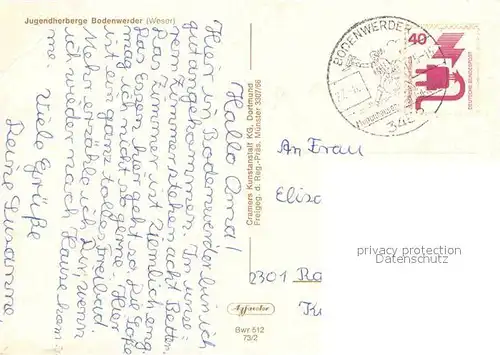 Jugendherberge Bodenwerder (Weser)
Hallo Oma!
Hier in Bodenwerder bin ich
gut angekommen. In unse-
rem Zimmer stehen acht Betten.
Das Zimmer ist ziemlich eng.
Das Essen hier geht so. Die Soße
mag ich nicht so gerne. Hier
ist ein ganz tolles Freibad.
Mehr erzähle ich Dir wenn
ich wieder nach Hause kom-
me. Viele Grüße
Deine Susanne
Cramers Kunstanstalt KG, Dortmund
Freigeg. d. Reg.-Präs. Münster 3307/66
Bwr 512
73/2
BODENWERDER
40
DEUTSCHE BUNDESPOST
An Frau
Elisa
2301 Ra
privacy protection